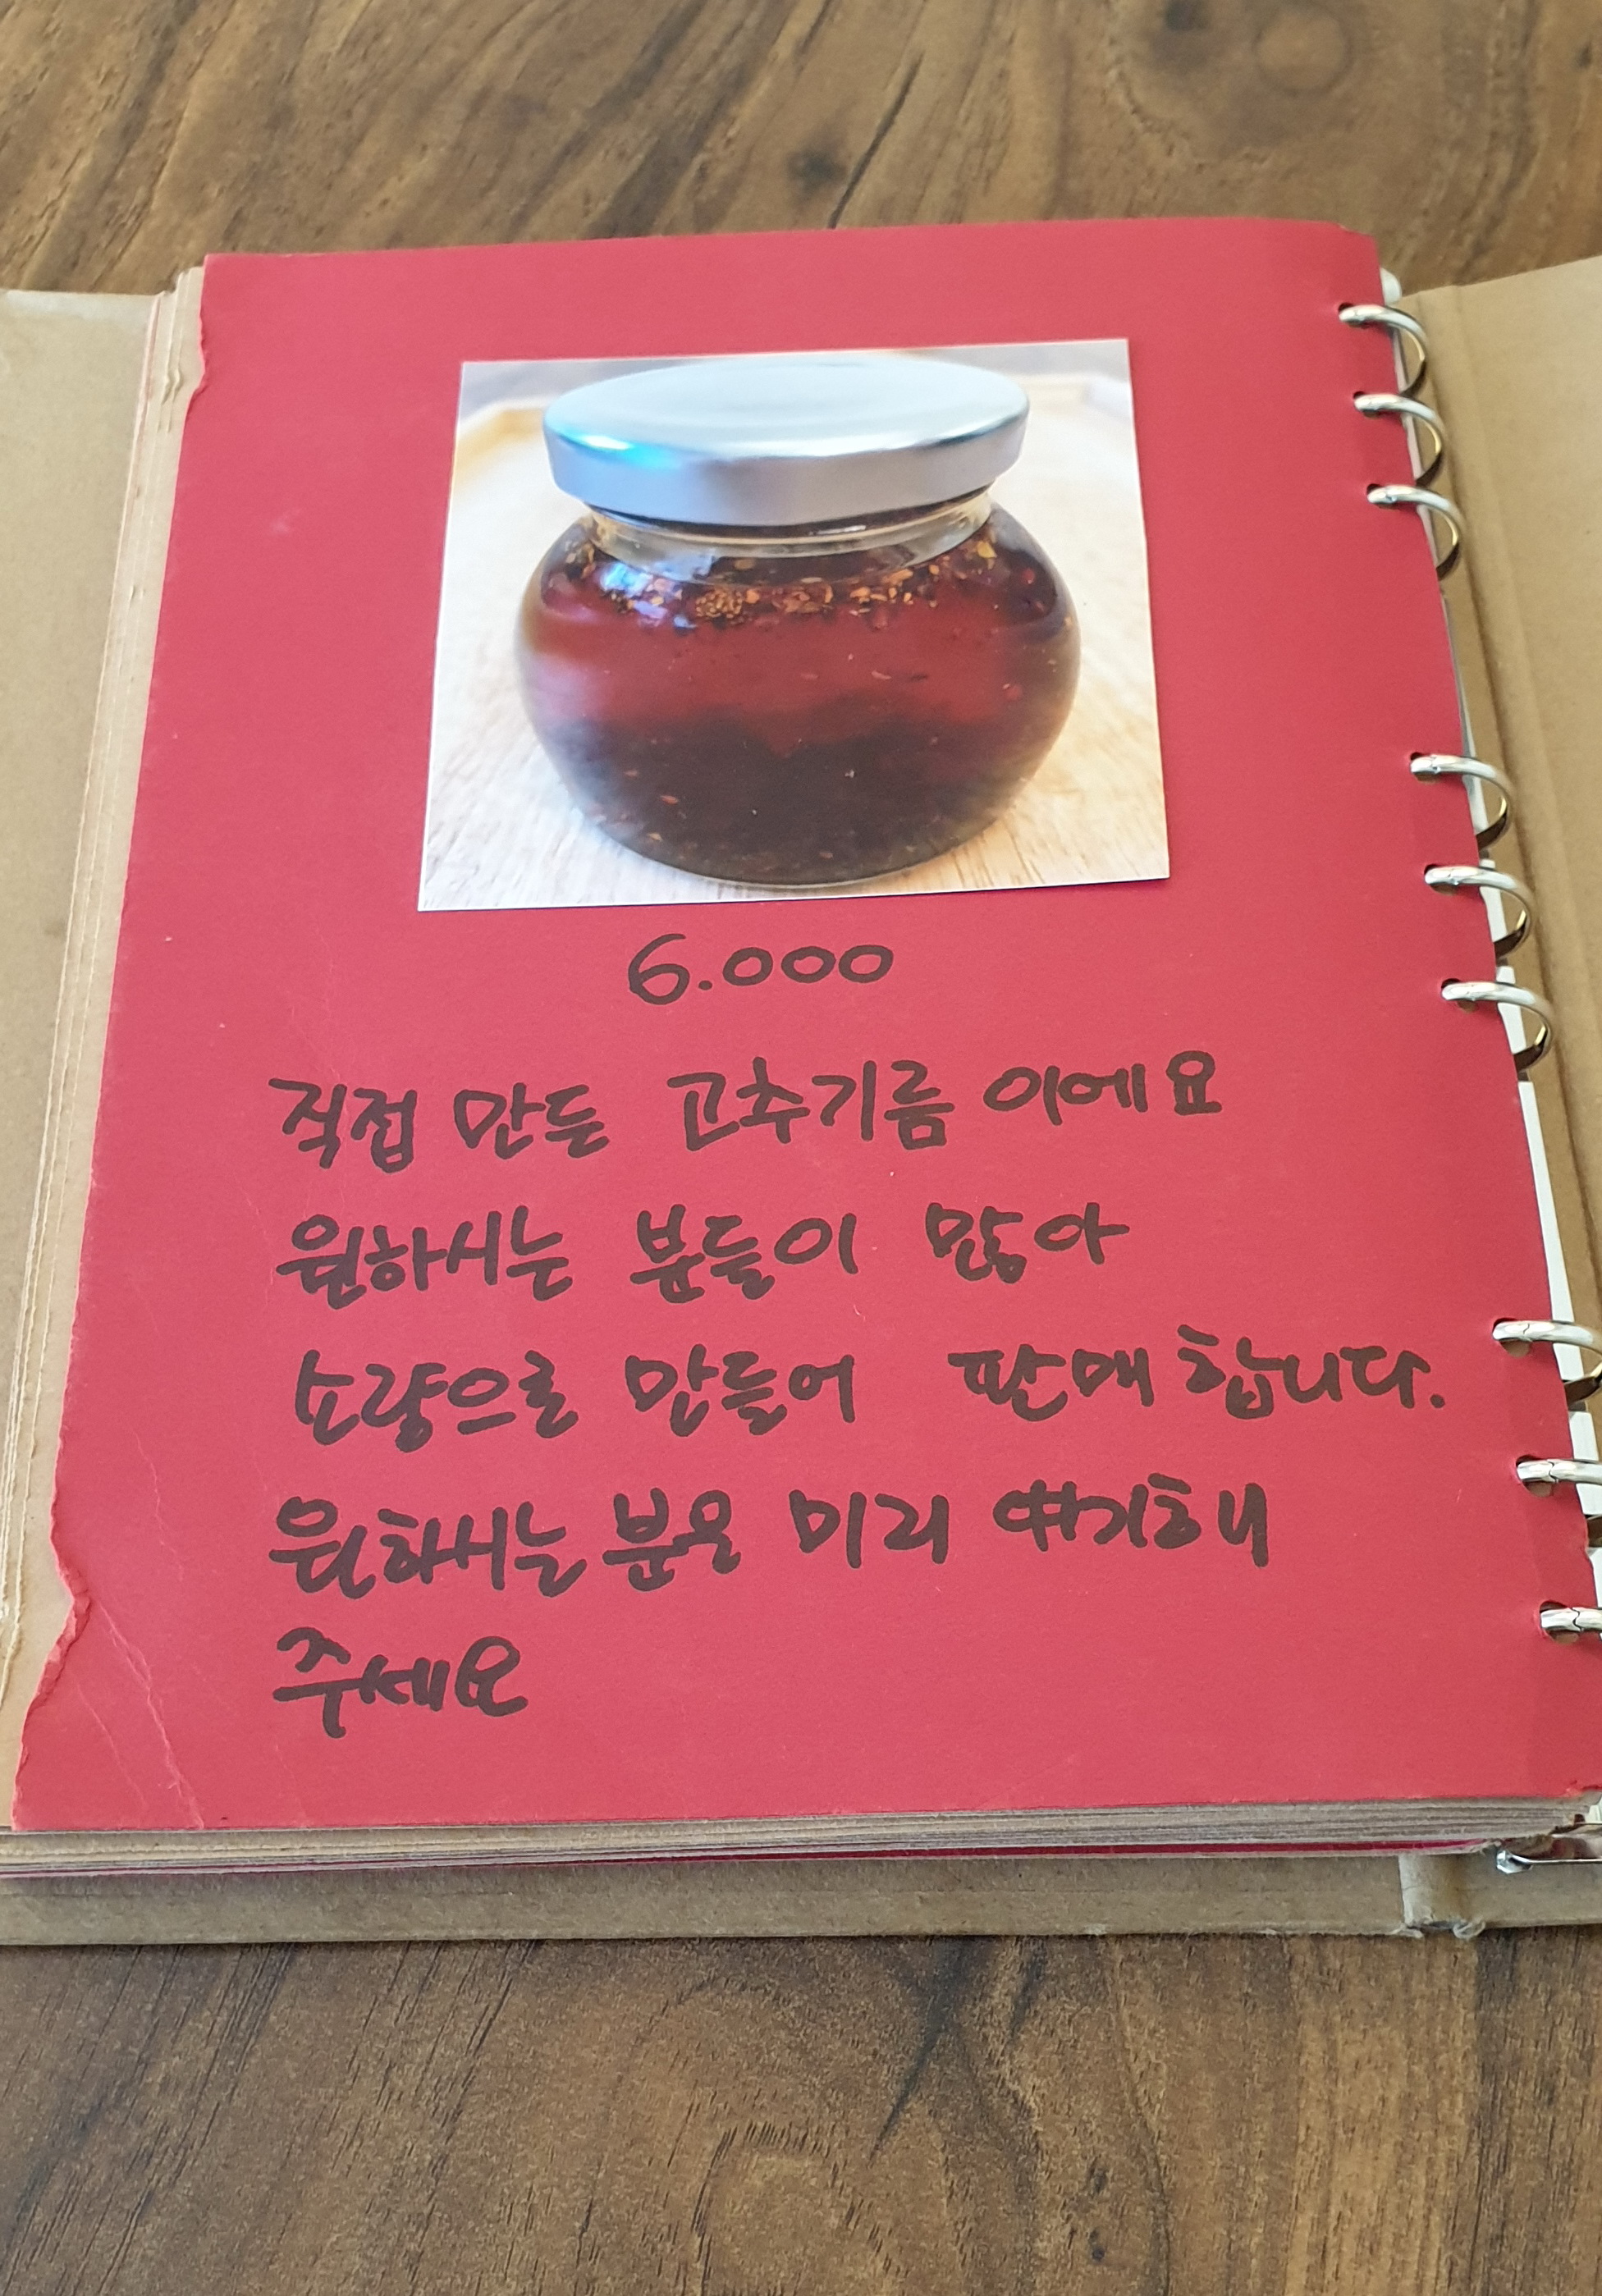 6.000
직접 만든 고추기름 이에요
원하시는 분들이 많아
소량으로 만들어 판매 합니다.
원하시는 분은 미리 얘기해
주세요